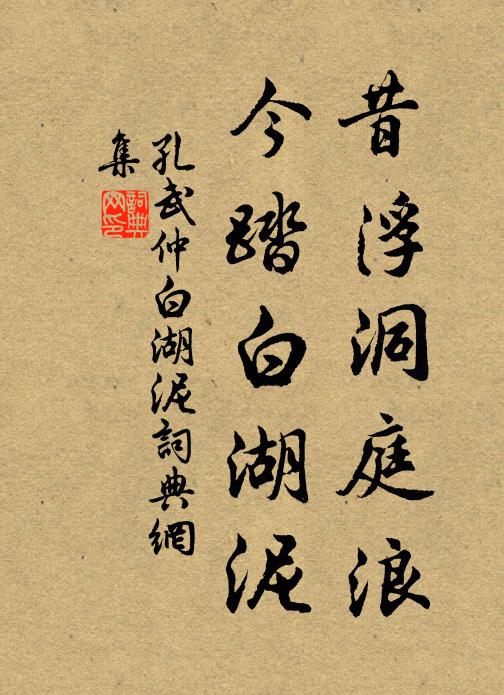 昔浮洞庭浪
今踏白湖泥
孔武仲白湖泥詞典網
集
詞典網印